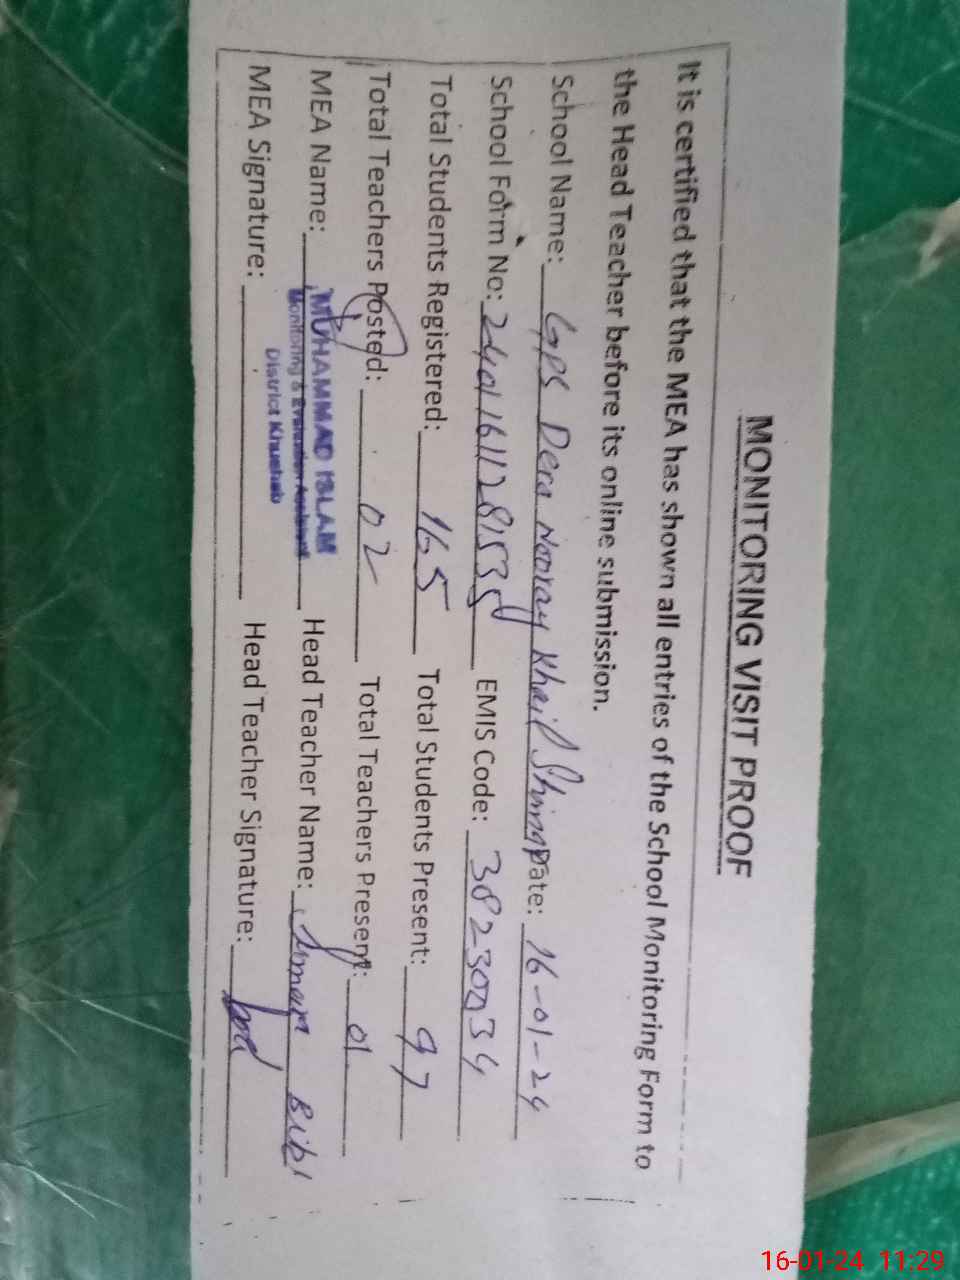 MONITORING VISIT PROOF
It is certified that the MEA has shown all entries of the School Monitoring Form to
the Head Teacher before its online submission.
School Name: GPS Dera Nooray Khail Date: 16-01-24
School Form No: 24011611281535 EMIS Code: 38230034
Total Students Registered: 165 Total Students Present: 97
Total Teachers Posted: 02 Total Teachers Present: 01
MEA Name: MUHAMMAD ISLAM Head Teacher Name: Bibi
Monitoring & Evaluation Assistant
District Khushab
MEA Signature: Head Teacher Signature:
16-01-24 11:29